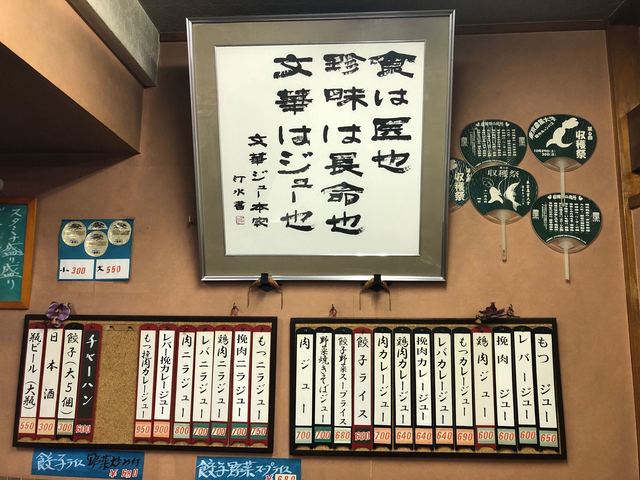 食は医也
珍味は長命也
文華はジュー也
文華ジュー本家
竹水書
収穫祭
収穫祭
収穫祭
スタミナ盛り盛り
小 300
大 550
もつ ジュー 650
レバ ジュー 600
挽肉 ジュー 600
鶏肉 ジュー 600
もつカレージュー 690
レバカレージュー 640
挽肉カレージュー 640
鶏肉カレージュー 640
肉カレージュー 700
餃子ライス 680
餃子野菜スープライス 680
野菜焼きそばジュー 700
肉ジュー 700
もつニラジュー 750
挽肉ニラジュー 700
鶏肉ニラジュー 700
レバニラジュー 700
肉ニラジュー 800
レバー挽カレージュー 900
もつ挽肉カレージュー 950
チャーハン
餃子(大5個) 300
日本酒 300
瓶ビール(大瓶) 550
餃子ライス
餃子野菜スプライス
¥680